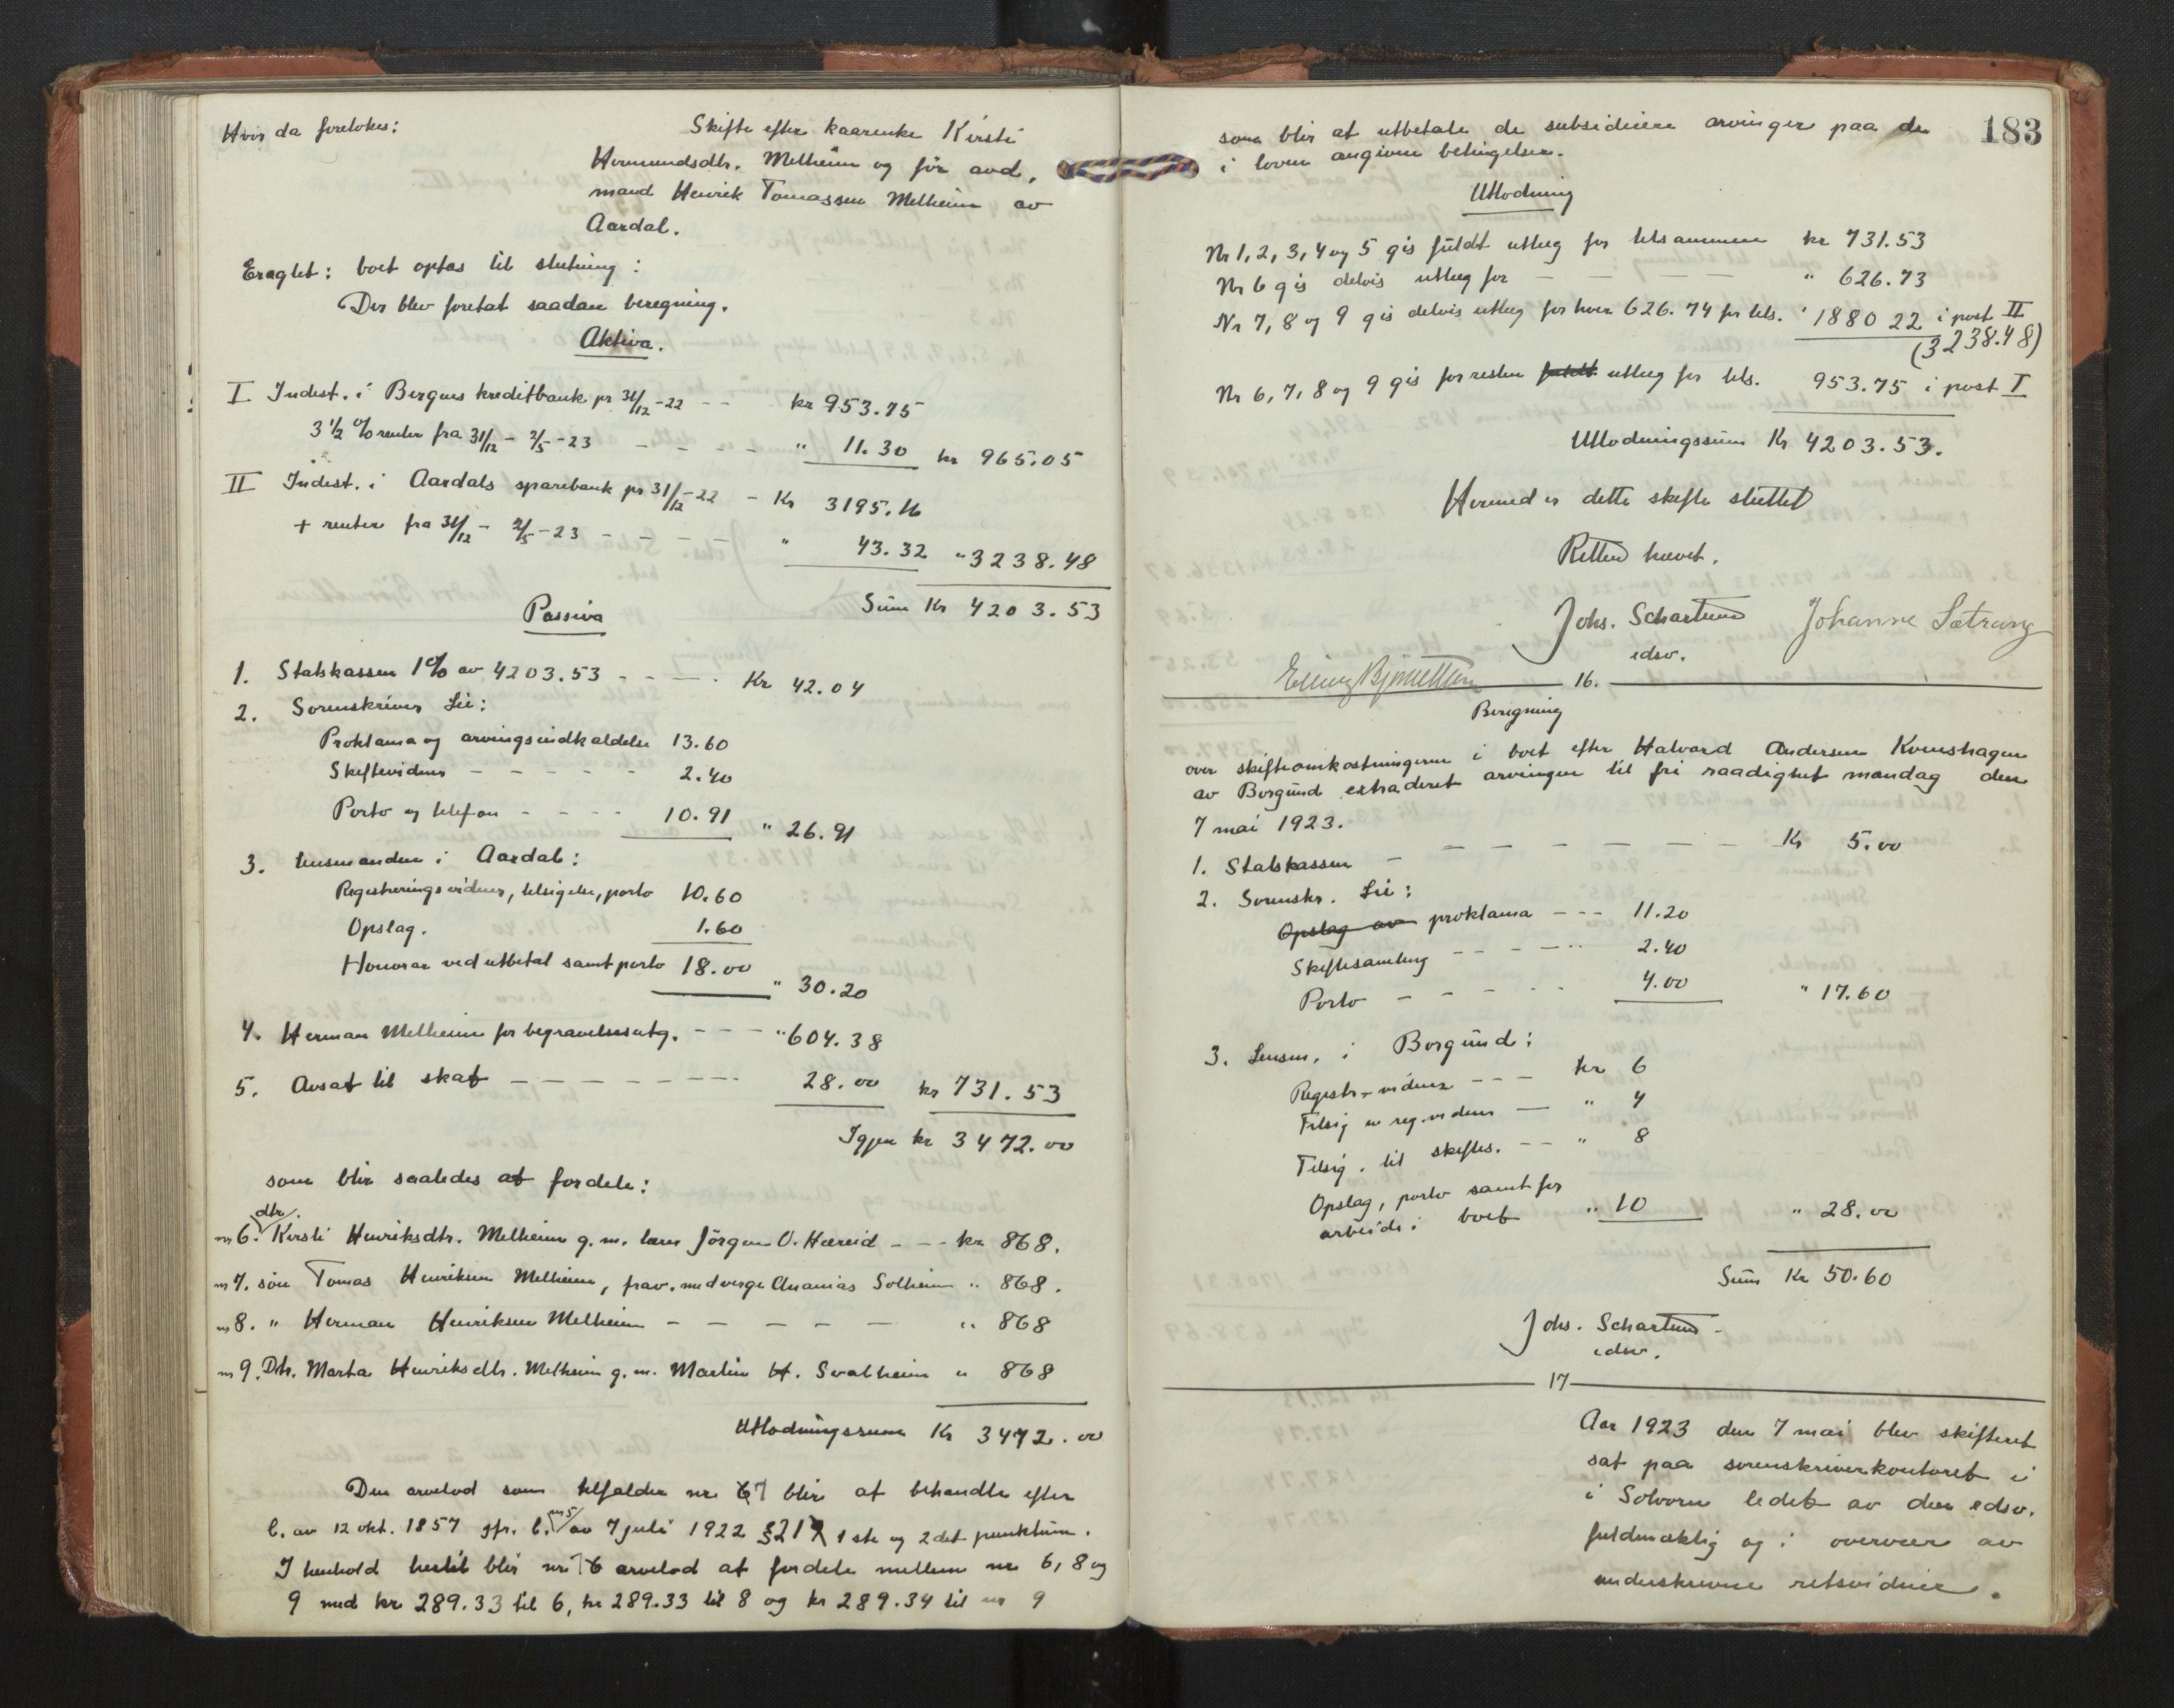 Hvor da foretokes:
Skifte efter kaarenke Kirsti
Hermundsdtr. Melheim og før avd.
mand Henrik Tomassen Melheim av
Aardal.
Eragtet: boet optas til slutning:
Der blev foretat saadan beregning.
Aktiva.
I Indest. i Bergens kreditbank pr 31/12-22 - - kr 953.75
3 1/2 % renter fra 31/12 - 2/5-23 - - - - " 11.30 kr 965.05
II Indest. i Aardals sparebank pr 31/12-22 - Kr 3195.16
+ renter fra 31/12 - 2/5-23 - - - - " 43.32 " 3238.48
Sum Kr 4203.53
Passiva
1. Statskassen 1% av 4203.53 - - - Kr 42.04
2. Sorenskriver Lie:
Proklama og arvingsindkaldelse 13.60
Skiftevidner - - - - - 2.40
Porto og telefon - - - - 10.91 " 26.91
3. Lensmanden i Aardal:
Registreringsvidner, tilsigelse, porto 10.60
Opslag. 1.60
Honorar ved utbetal samt porto 18.00 " 30.20
4. Herman Melheim for begravelsesutg. - - - " 604.38
5. Avsat til skat - - - - - - - 28.00 kr 731.53
Igjen kr 3472.00
som blir saaledes at fordele:
nr 6. dtr. Kirsti Henriksdtr. Melheim g.m. lærer Jörgen O. Hæreid - - - kr 868.
nr 7. søn Tomas Henriksen Melheim, frav. med verge Ananias Solheim " 868.
nr 8. " Herman Henriksen Melheim - - - - - " 868
nr 9. Dtr. Marta Henriksdtr. Melheim g.m. Martin H. Svalheim " 868
Utlodningssum Kr 3472.00
Den arvelod som tilfalder nr 7 blir at behandle efter
l. av 12 okt. 1857 jfr. l. nr 5 av 7 juli 1922 §21 1ste og 2det punktum.
I henhold hertil blir nr 7 arvelod at fordele mellem nr 6, 8 og
9 med kr 289.33 til 6, kr 289.33 til 8 og kr 289.34 til nr 9
183
som blir at utbetale de subsidiære arvinger paa de
i loven angivne betingelser.
Utlodning
Nr 1, 2, 3, 4 og 5 gis fuldt utlæg for tilsammen kr 731.53
Nr 6 gis delvis utlæg for - - - - " 626.73
Nr 7, 8 og 9 gis delvis utlæg for hver 626.74 pr tils. " 1880 22 i post II
(3238.48)
Nr 6, 7, 8 og 9 gis for resten fuldt utlæg for tils. 953.75 i post I
Utlodningssum Kr 4203.53.
Hermed er dette skifte sluttet
Retten hævet.
Johs. Schartum Johanne Sætrang
edsv.
16.
Beregning
over skifteomkostningerne i boet efter Halvard Andersen Kvenshagen
av Borgund extraderet arvingen til fri raadighet mandag den
7 mai 1923.
1. Statskassen - - - - - - - - Kr 5.00
2. Sorenskr. Lie:
Opslag av proklama - - - 11.20
Skiftesamling - - - - - 2.40
Porto - - - - - 4.00 " 17.60
3. Lensm. i Borgund:
Registr-vidner - - - kr 6
Tilsig av reg.vidner - " 4
Tilsig. til skiftes. - - " 8
Opslag, porto samt for
arbeide i boet " 10 " 28.00
Sum Kr 50.60
Johs. Schartum
edsv.
17
Aar 1923 den 7 mai blev skifteret
sat paa sorenskriverkontoret i
i Solvorn ledet av den edsv.
fuldmæktig og i overvær av
underskrevne retsvidner.